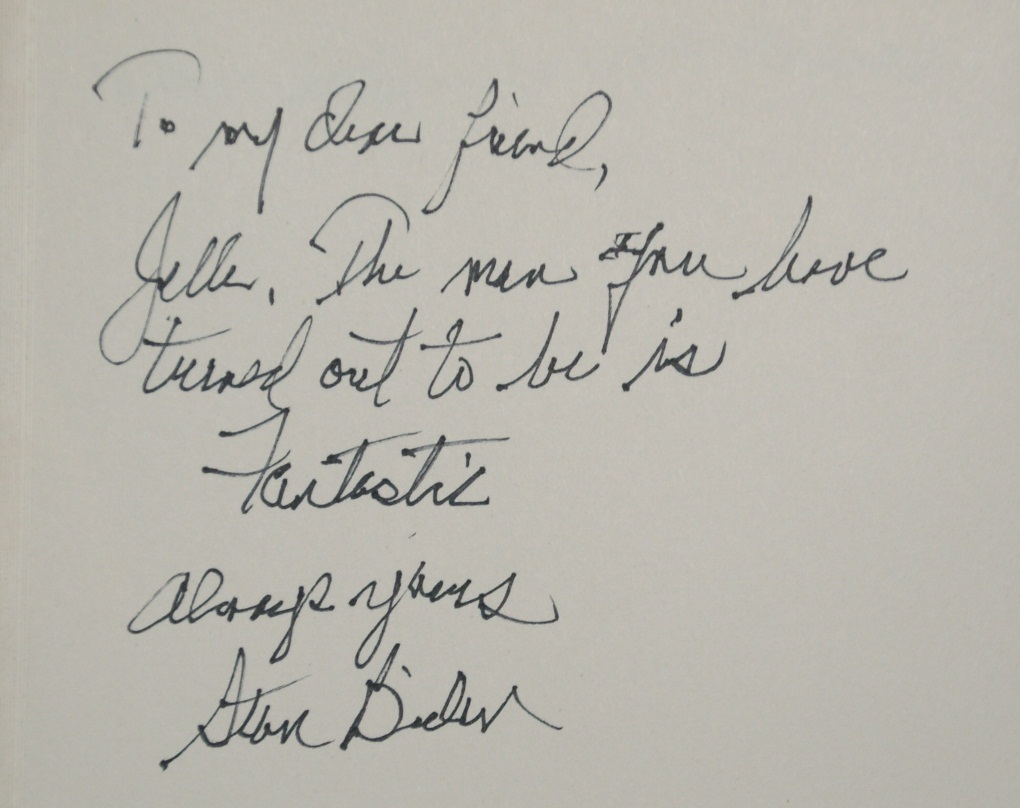 To my dear friend,
Jelle. The man you have
turned out to be is
Fantastic
Always yours
Stan Bider